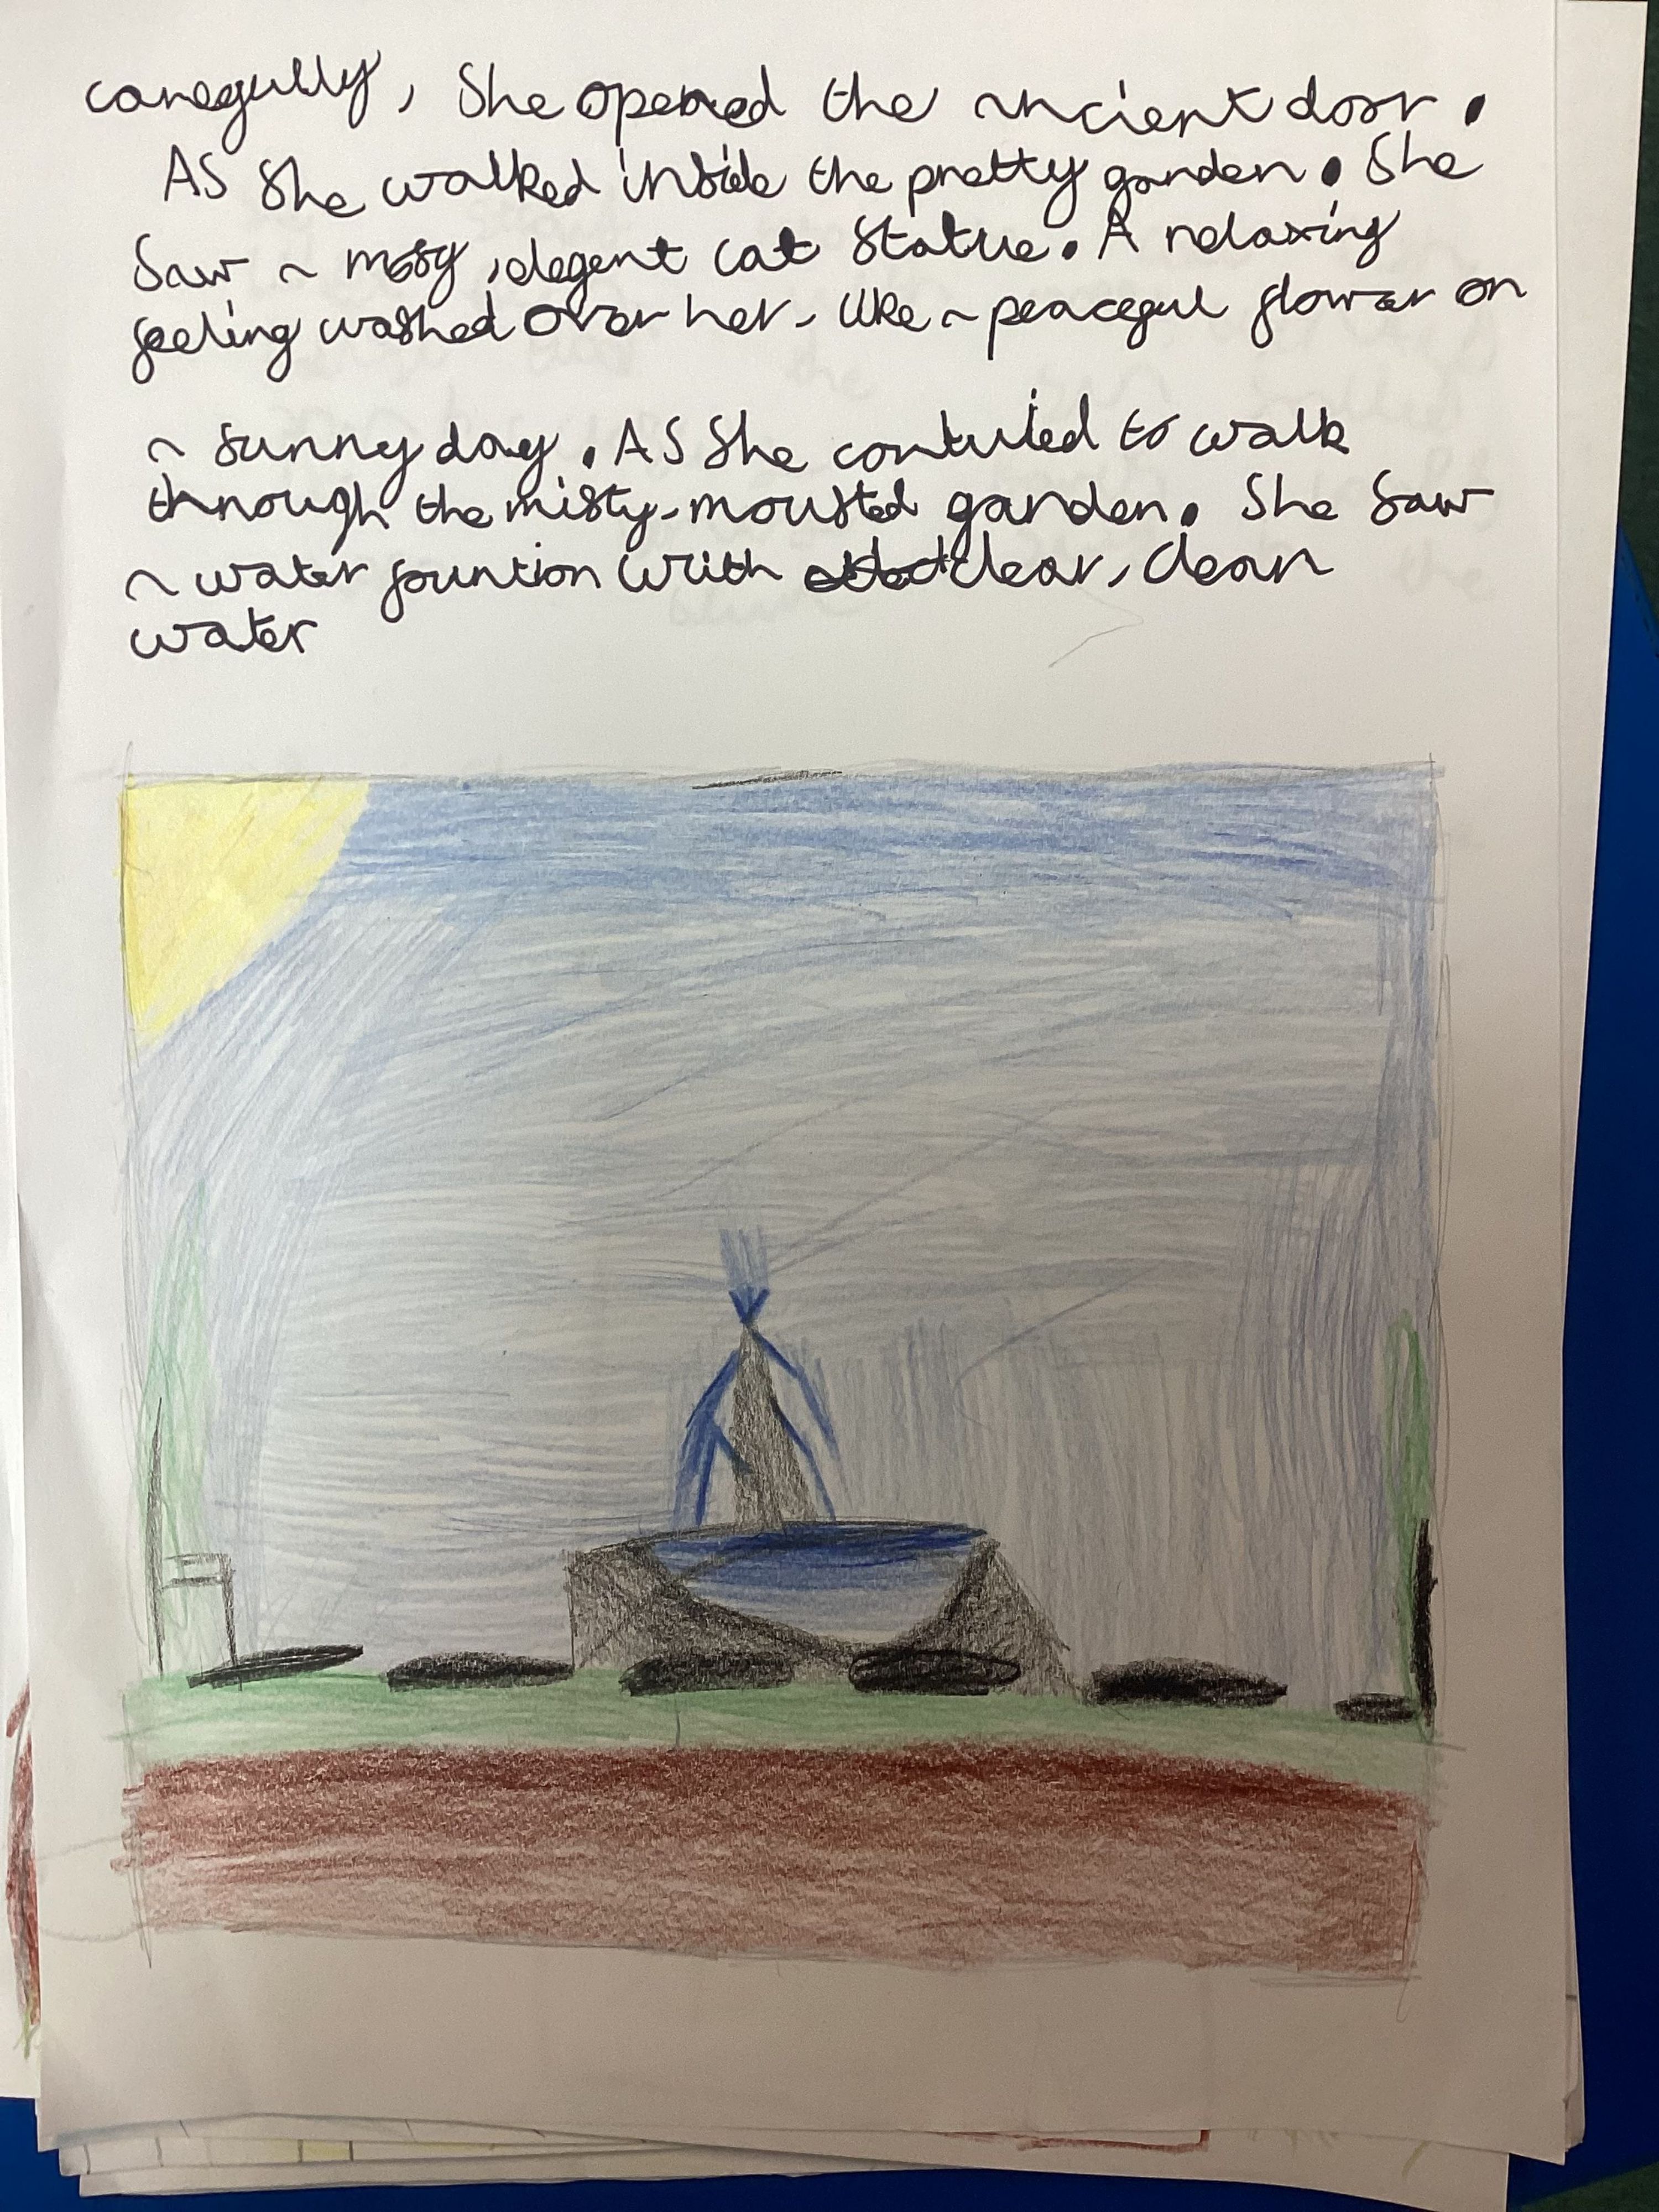 carefully, She opened the ancient door.
As She walked inside the pretty garden. She
Saw a mosy, elegent cat Statue. A relaxing
feeling washed over her - like a peaceful flower on
a sunny day. As She contuied to walk
through the misty - mousted garden. She Saw
a water fountion with clear, clean
water